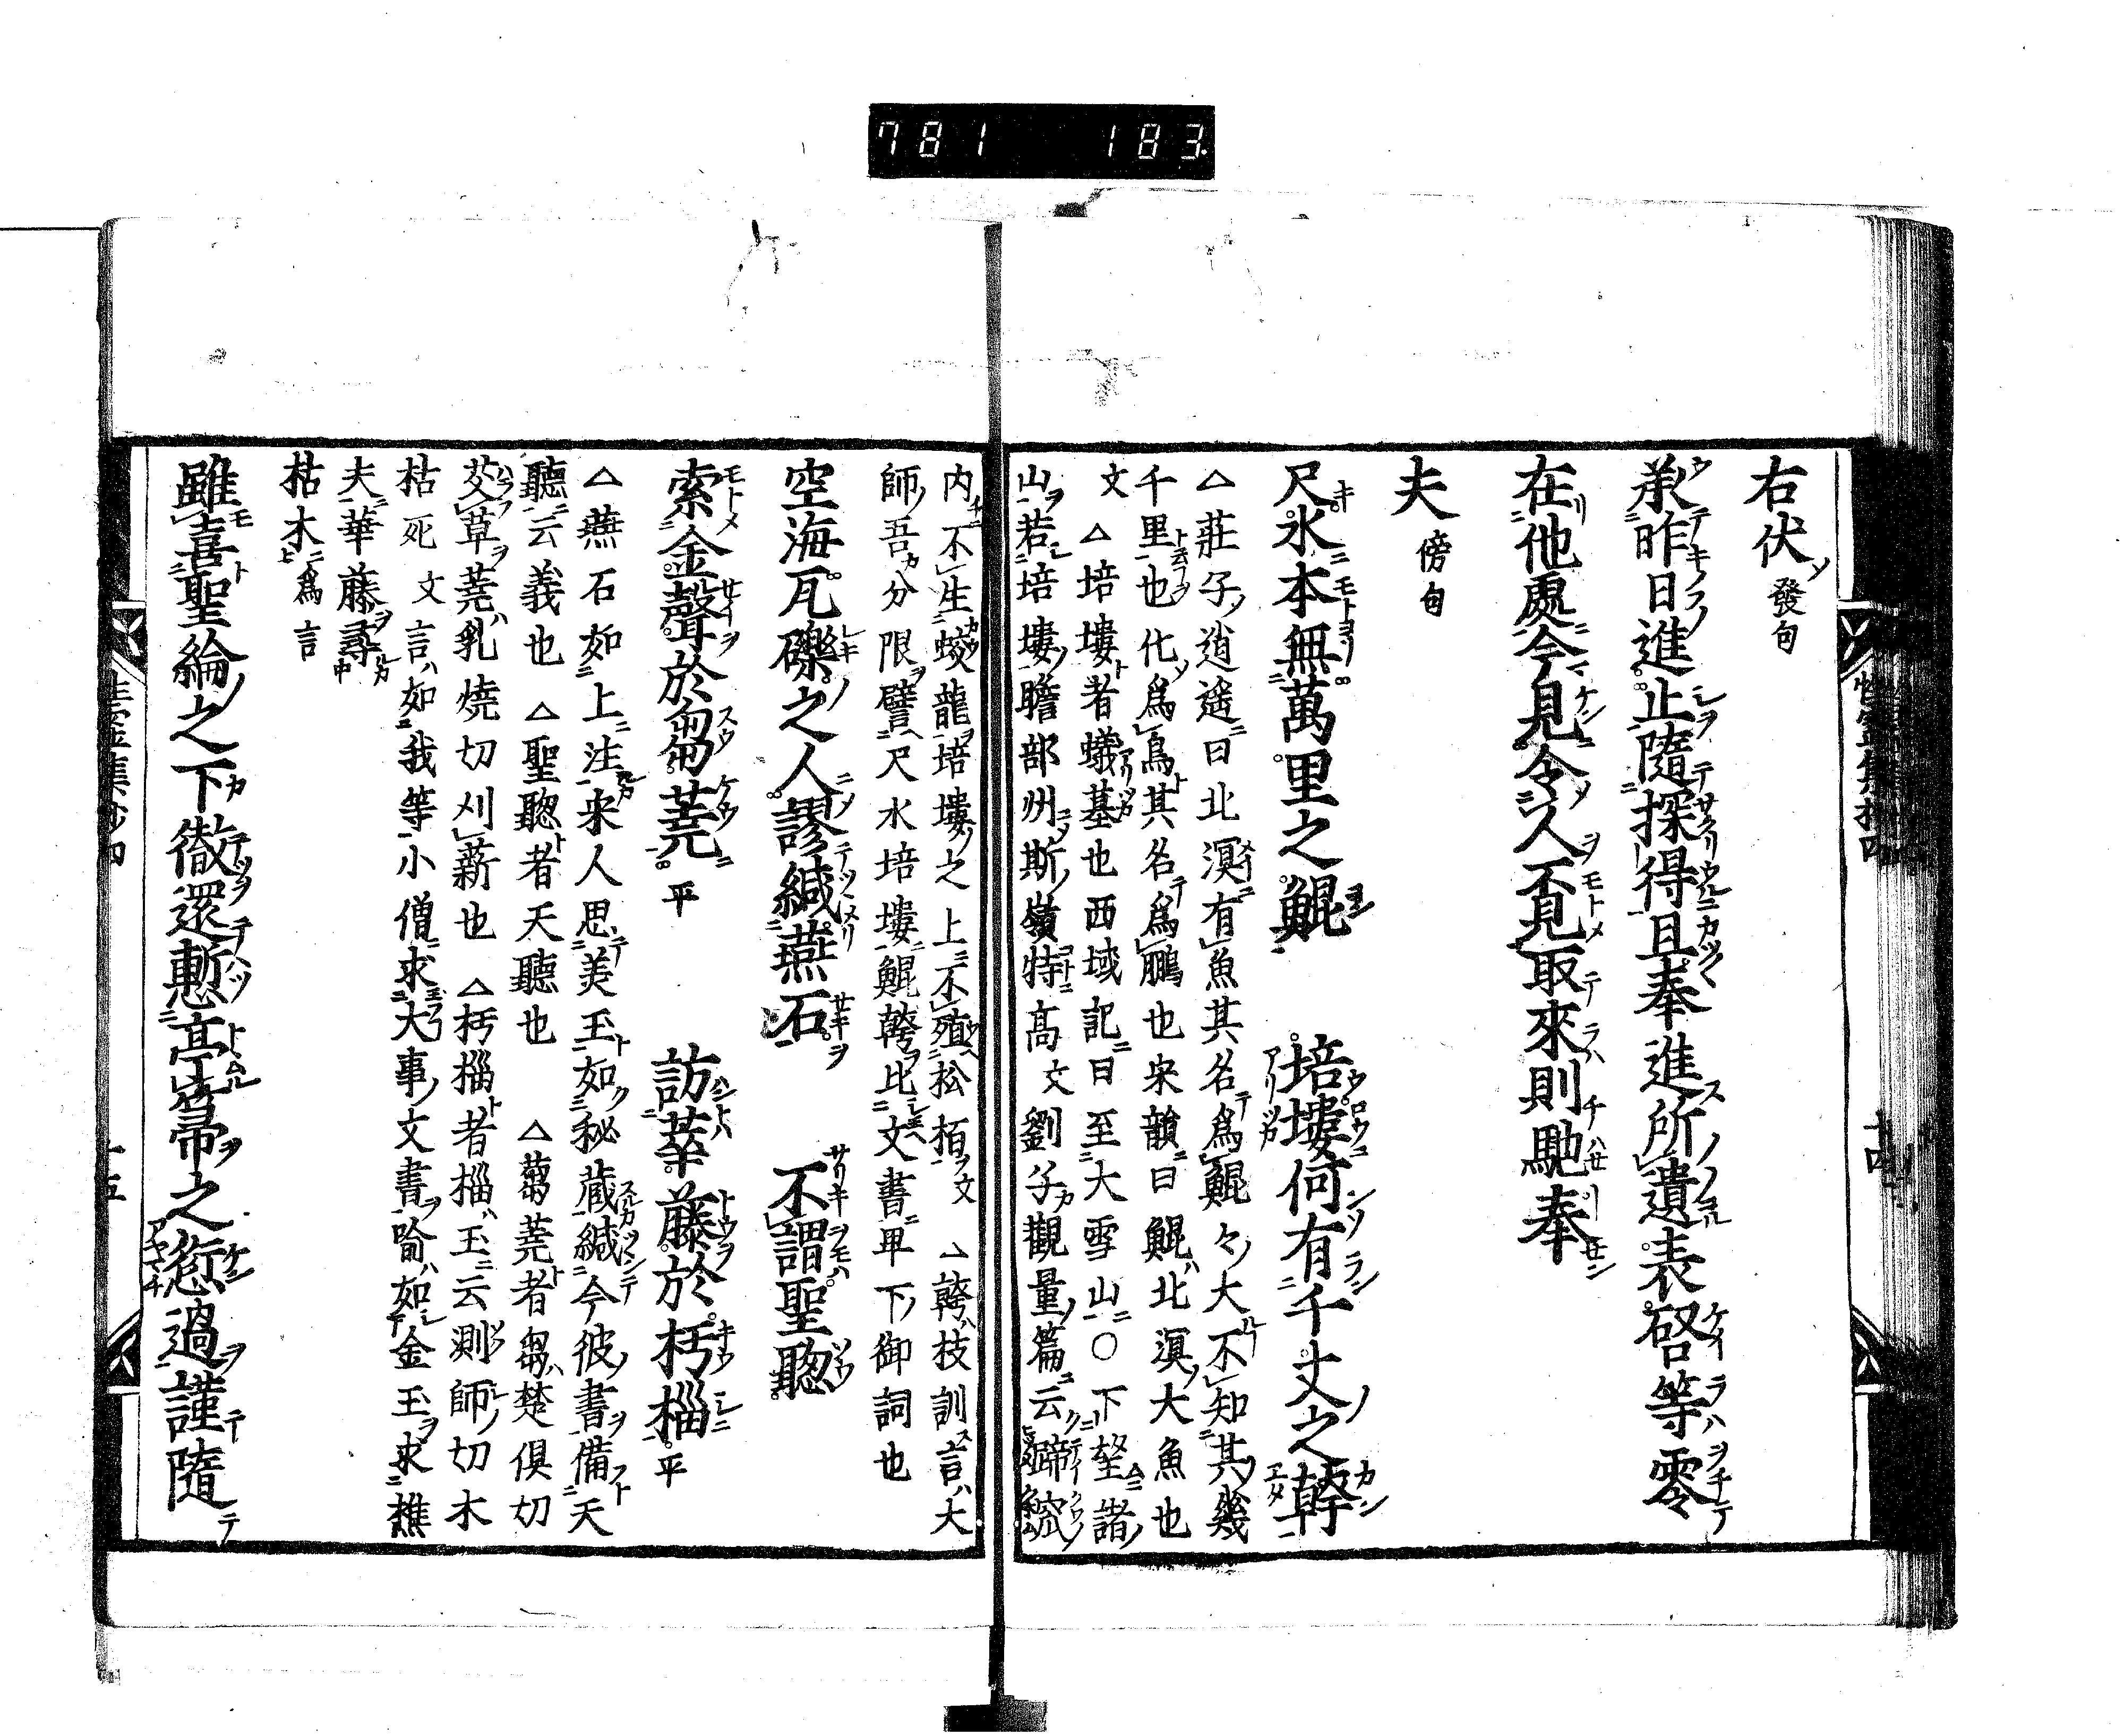 781 183
右伏 發句
承昨日進止隨探得且奉進所遺表啓等零
在他處今見令人覓取來則馳奉
夫 傍句
尺水本無萬里之鯤 培塿何有千丈之𩏑
△莊子逍遙曰北溟有魚其名爲鯤々大不知其幾
千里也化爲鳥其名爲鵬也宋韻曰鯤北溟大魚也
文 △培塿者蟻墓也西域記曰至大雪山○下望諸
山若培塿贍部州斯嶺特髙文劉子觀量篇云蹄
内不生蛟龍培塿之上不殖松栢文 △𩏑枝訓言大
師吾分限譬尺水培塿鯤𩏑比文書卑下御詞也
空海瓦礫之人謬緘燕石 不謂聖聰
索金聲於芻蕘 平 訪華藤於朽椔 平
△燕石如上注宋人思美玉如秘蔵緘今彼書備天
聽云義也 △聖聰者天聽也 △蒭蕘者芻楚俱切
芟草蕘乳燒切刈薪也 △朽椔者椔玉云測師切木
枯死文言如我等小僧求大事文書喩如金玉求樵
夫華藤尋
枯木爲言
雖喜聖綸之下徹還慙亭𫞕之愆過謹隨